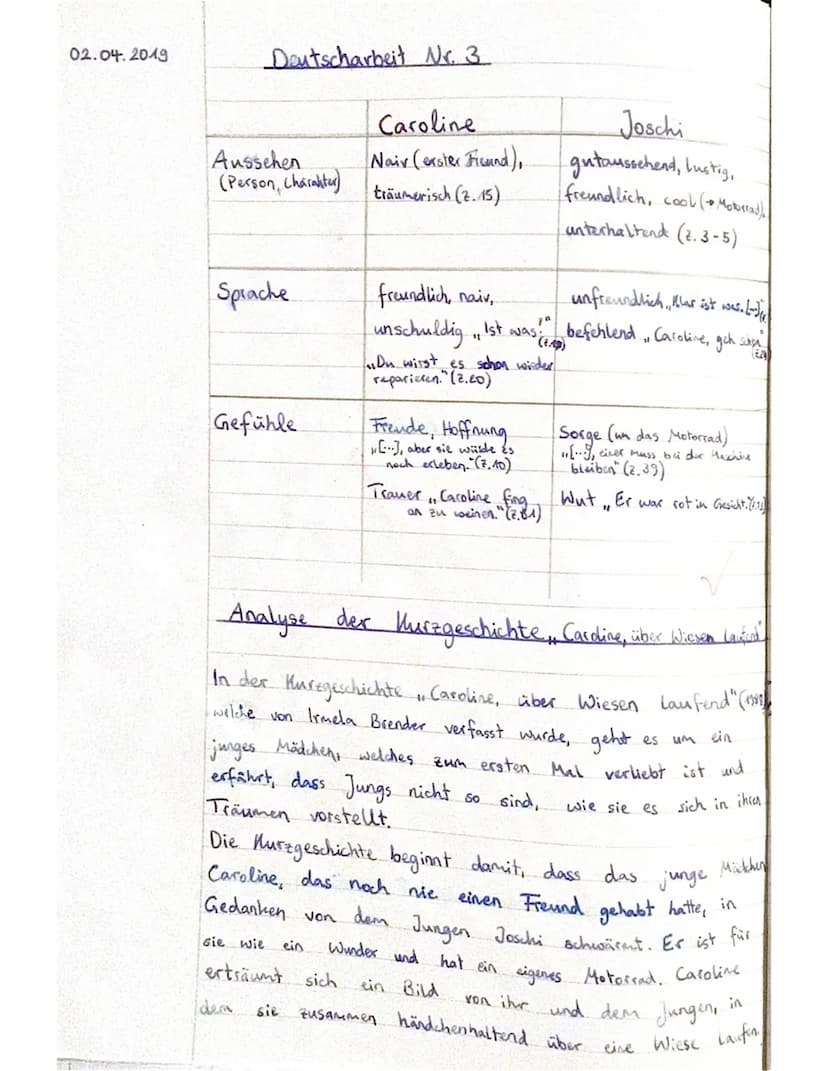 02.04.2019
Deutscharbeit Nr. 3
Caroline
Joschi
Aussehen
(Person, Charakter)
Naiv (erster Freund),
träumerisch (Z. 15)
gutaussehend, lustig,
freundlich, cool (→ Motorrad),
unterhaltend (Z. 3-5)
Sprache
freundlich, naiv,
unschuldig „Ist was?"
„Du wirst es schon wieder
reparieren." (Z. 20)
unfreundlich „Klar ist was. [...]"
befehlend „Caroline, geh schon"
Gefühle
Freude, Hoffnung
„[...], aber sie würde es
noch erleben." (Z. 10)
Trauer „Caroline fing
an zu weinen." (Z. 81)
Sorge (um das Motorrad)
„[...], einer muss bei der Maschine
bleiben" (Z. 39)
Wut „Er war rot im Gesicht."
Analyse der Kurzgeschichte „Caroline, über Wiesen laufend"
In der Kurzgeschichte „Caroline, über Wiesen laufend"
welche von Irmela Brender verfasst wurde, geht es um ein
junges Mädchen, welches zum ersten Mal verliebt ist und
erfährt, dass Jungs nicht so sind, wie sie es sich in ihren
Träumen vorstellt.
Die Kurzgeschichte beginnt damit, dass das junge Mädchen
Caroline, das noch nie einen Freund gehabt hatte, in
Gedanken von dem Jungen Joschi schwärmt. Er ist für
sie wie ein Wunder und hat ein eigenes Motorrad. Caroline
erträumt sich ein Bild von ihr und dem Jungen, in
dem sie zusammen händchenhaltend über eine Wiese laufen.